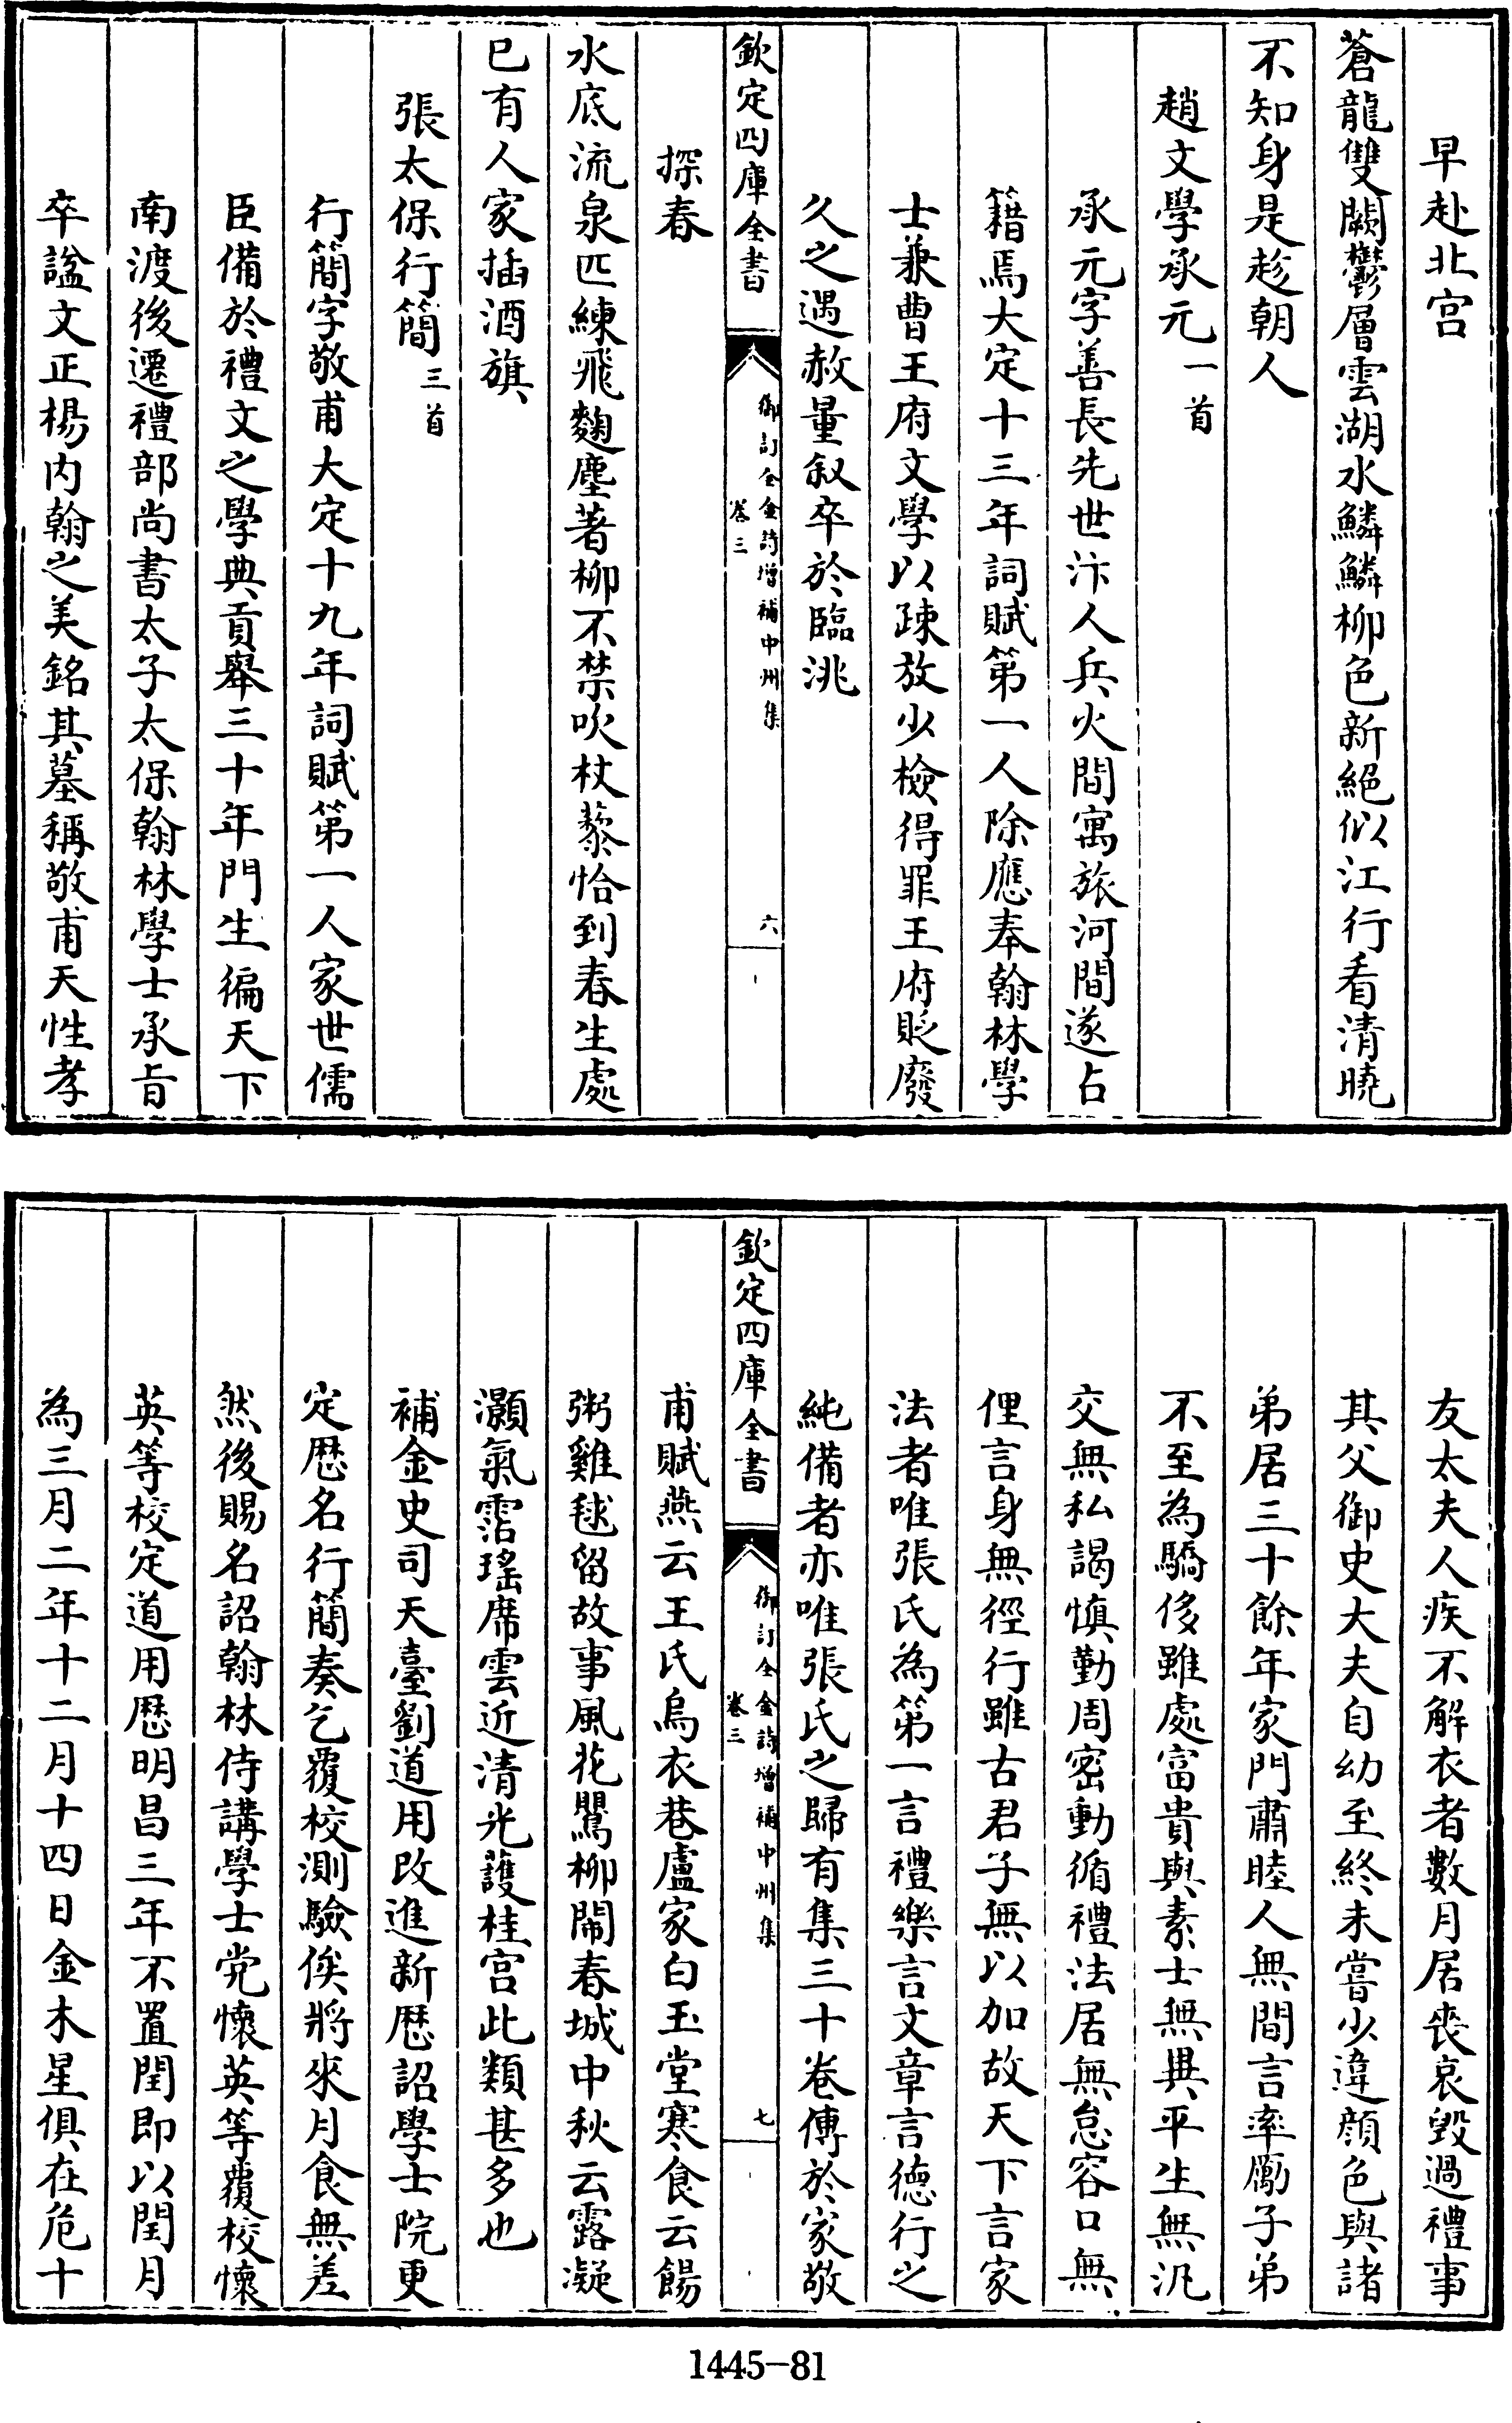 早赴北宫
蒼龍雙闕鬱層雲湖水鱗鱗柳色新絕似江行看清曉
不知身是趁朝人
趙文學承元一首
承元字善長先世汴人兵火間寓旅河間遂占
籍焉大定十三年詞賦第一人除應奉翰林學
士兼曹王府文學以疎放少檢得罪王府貶廢
久之遇赦量叙卒於臨洮
欽定四庫全書
御訂全金詩增補中州集
卷三
六
探春
水底流泉匹練飛麴塵著柳不禁吹杖藜恰到春生處
已有人家插酒旗
張太保行簡三首
行簡字敬甫大定十九年詞賦第一人家世儒
臣備於禮文之學典貢舉三十年門生徧天下
南渡後遷禮部尚書太子太保翰林學士承旨
卒諡文正楊内翰之美銘其墓稱敬甫天性孝
友太夫人疾不解衣者數月居喪哀毀過禮事
其父御史大夫自幼至終未嘗少違顔色與諸
弟居三十餘年家門肅睦人無間言率勵子弟
不至為驕侈雖處富貴與素士無異平生無汎
交無私謁慎勤周密動循禮法居無怠容口無
俚言身無徑行雖古君子無以加故天下言家
法者唯張氏為第一言禮樂言文章言德行之
純備者亦唯張氏之歸有集三十卷傳於家敬
欽定四庫全書
御訂全金詩增補中州集
卷三
七
甫賦燕云王氏烏衣巷盧家白玉堂寒食云餳
粥雞毬留故事風花鸎柳鬧春城中秋云露凝
灝氣霑瑤席雲近清光護桂宫此類甚多也
補金史司天臺劉道用改進新厯詔學士院更
定厯名行簡奏乞覆校測驗俟將來月食無差
然後賜名詔翰林侍講學士党懷英等覆校懷
英等校定道用厯明昌三年不置閏即以閏月
為三月二年十二月十四日金木星俱在危十
1445-81